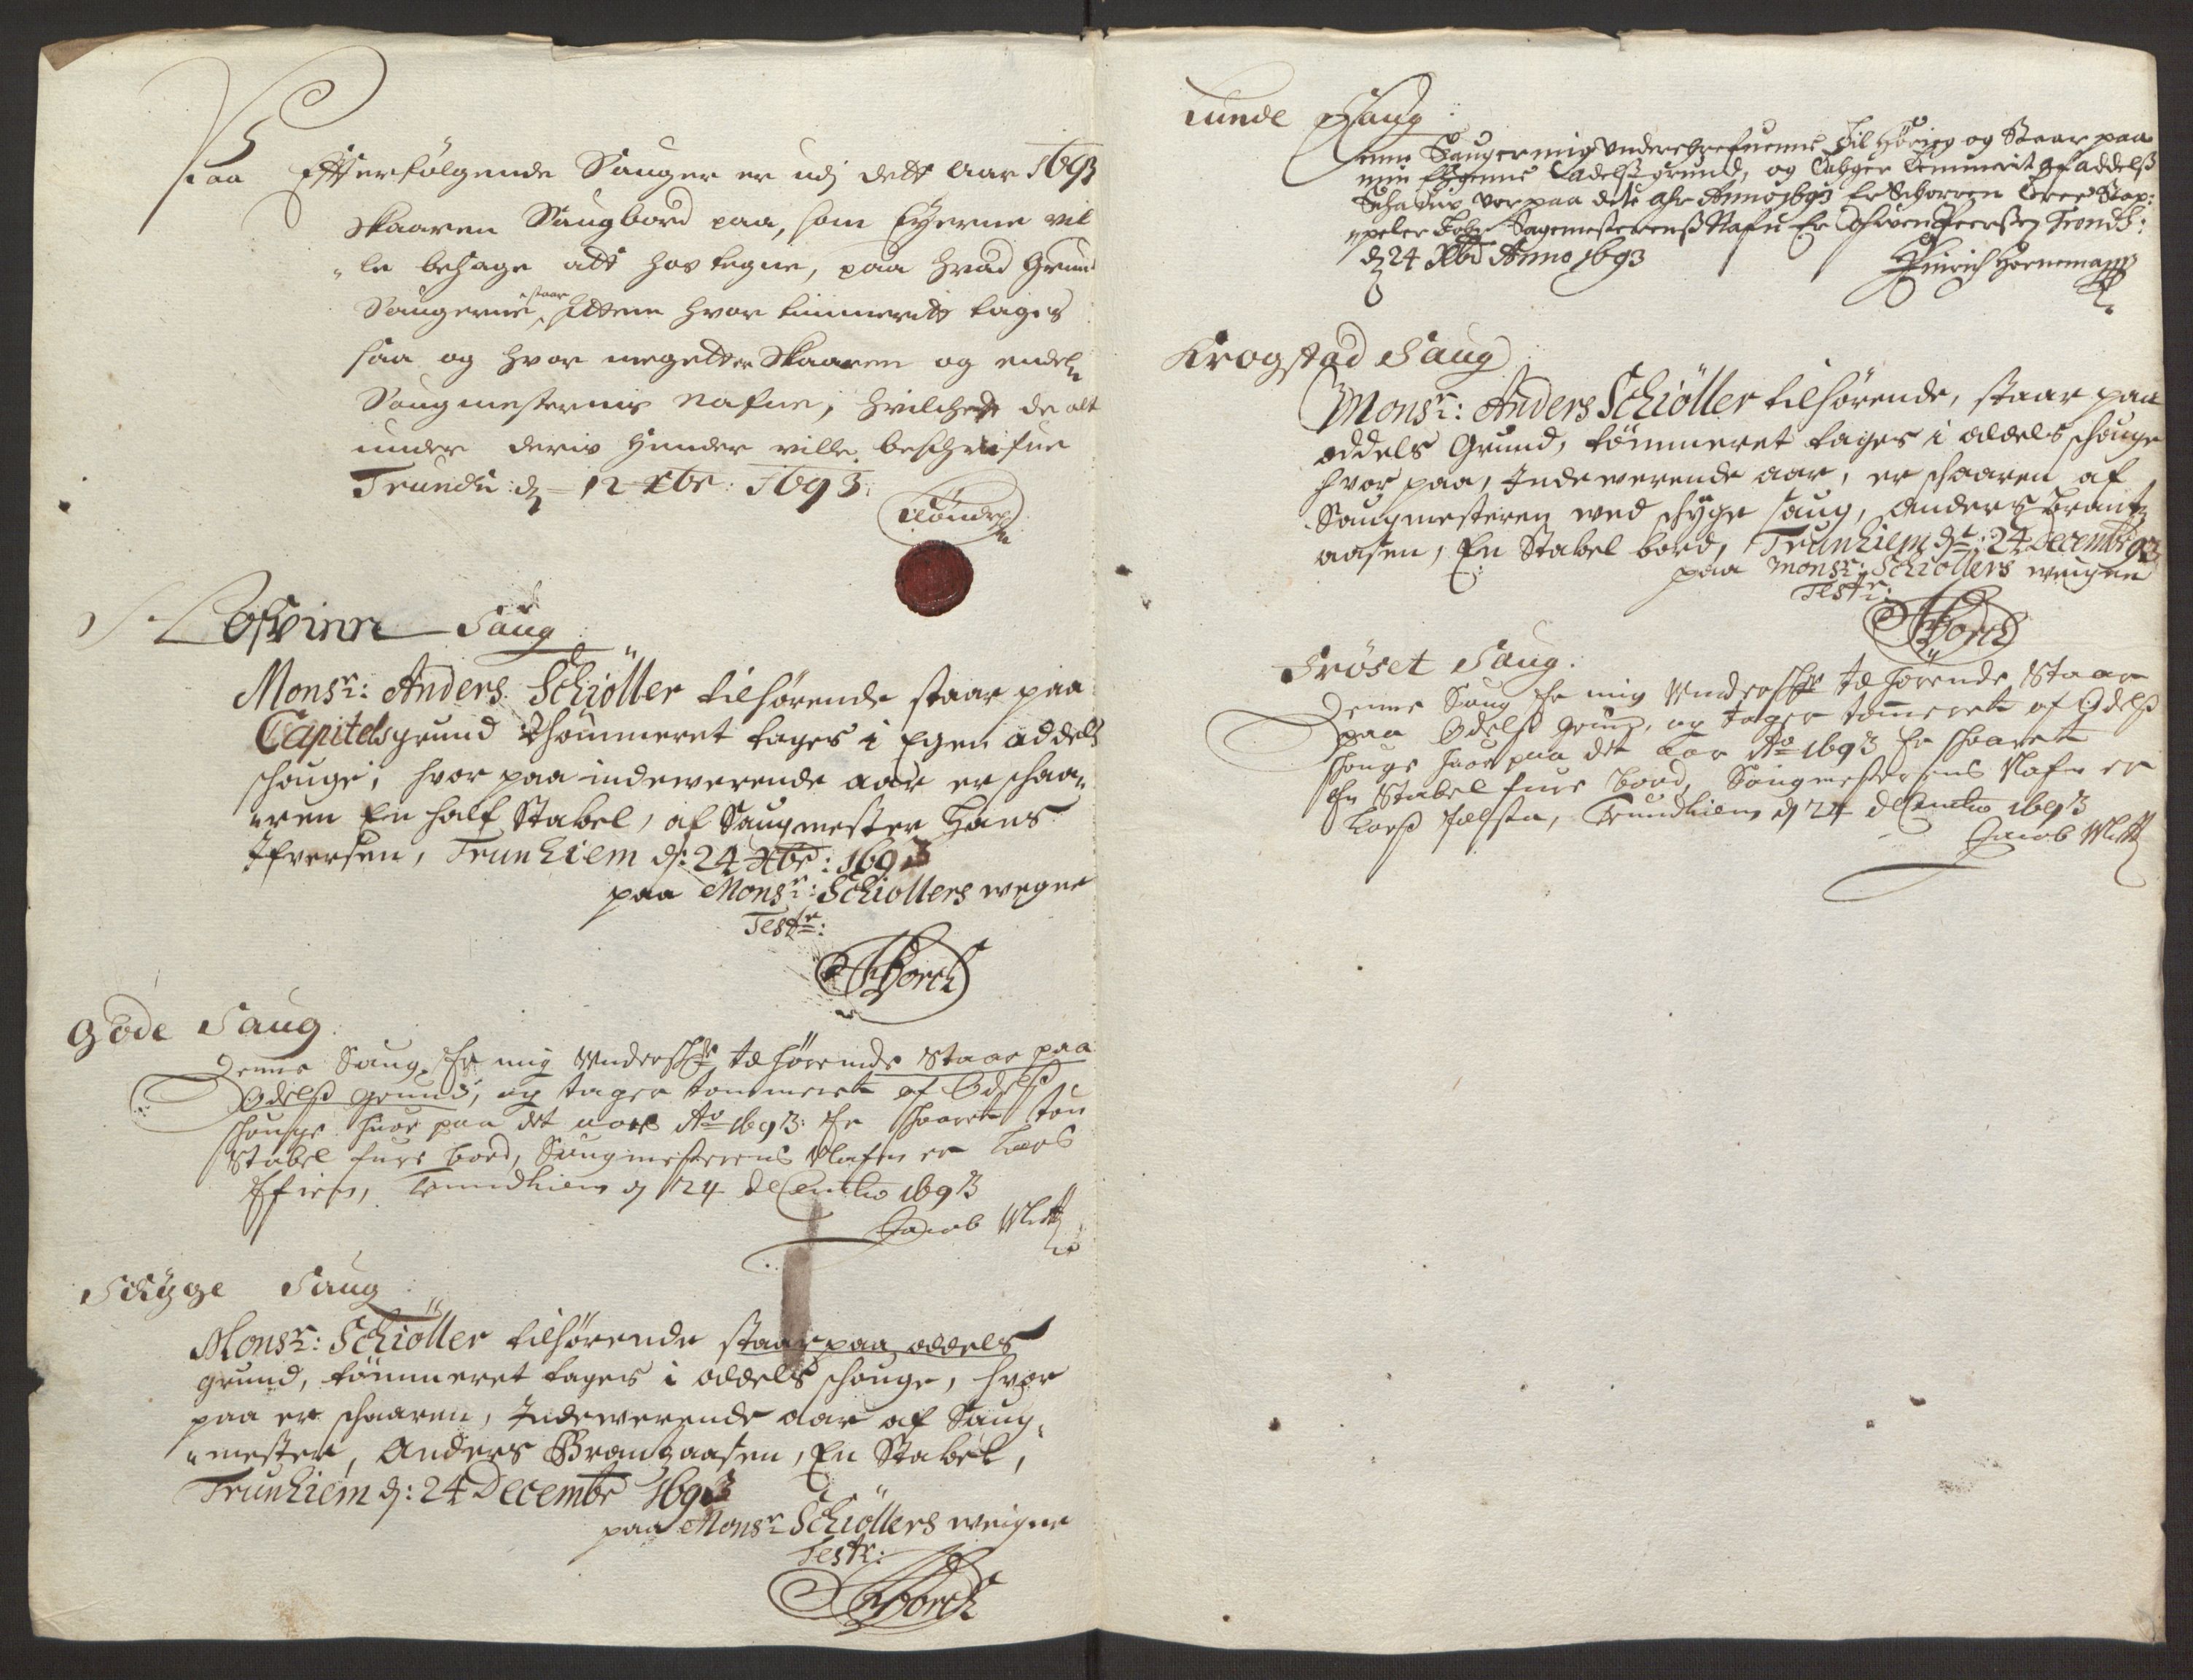 Paa Effterfölgende Sauger er udj dett aar 1693
skaaren Saugbord paa, som Eÿerne vil
"le behage att hos tegne, paa hvad Grund
Saugerne staar, Item hvor timmeritt tages
saa og hvor megett er skaaren og endel:
Saugmesternis nafne, hvilchet de alt
under deris hender ville beschrifue
Trundh: d: 12 Xbr: 1693:
Saug
Monsr: Anders Schiöller tilhörende staar paa
Capitels grund Thömmeret tages i Egen addels
schouge, hvor paa indewerende aar er schaa„
„ren En half Stabel, af Saugmester Hans
Ifversen, Trunhiem d: 24 Xbr: 1693
paa Monsr: Schiöllers wegne
Testr:
Borch
Gode Saug.
Denne Saug Er mig Underschr te hörende Staar paa
Odelss grund, og tager tommeret af Odelss
schouge huor paa det aar Ao 1693: Er schaaret tou
Stabel furre bord, Saugmesterens Nafn er Lars
Trundhiem d 24 decembr 1693
Jacob
Schÿge Saug
Monsr: Schiöller tilhörende staar paa oddels
grund, tömmeret tages i oddels schouge, hvor
paa er schaaren, Indewerende aar af Saug„
„mester, Anders Brantzaasen, En Stabel,
Trunhiem d: 24 Decembr 1693
paa Monsr Schiöllers weigne
Testr:
Borch
Lunde Saug
Saug er mig Til Hörig og Staar paa
min Eÿgenne Oadelss grund, og Tahger Temmerit af addelss
vor paa dete ahr Anno 1693 Er Schorren Stap:
"peler Sagemesterenss Nafn Er Trondh:
d 24 Xbr Anno 1693
Hinrich Hornemann
Krogstad Saug
Monsr: Anders Schiöller tilhörende, staar paa
oddels Grund, tömmeret tages i oddels schouge
hvor paa, Indewerende aar, er schaaren af
Saugmesteren wed schÿge saug, Anders Brantz
aasen, En Stabel bord, Trunhiem dt: 24 Decembr 93
paa Monsr: Schiöllers weigne
Testr:
Borch
Fröset Saug.
Denne Saug Er mig Underschr te hörende Staar
paa Odelss grund, og tager tommeret af Odelss
schouge huor paa det aar Ao 1693 Er schaaret
En Stabel furre bord, Saugmesterens Nafn er
Lars Trundhiem d 24 decembr 1693
Jacob